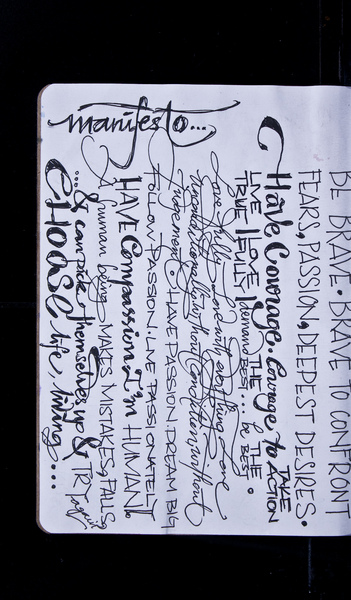 manifesto...
BE BRAVE. BRAVE TO CONFRONT
FEARS, PASSION, DEEPEST DESIRES.
Have Courage. Courage to TAKE ACTION
LIVE I LOVE THE
TRUE I FULLY I demand BEST... be the BEST.
Love fully. Love with everything. Love
unconditionally without conditions without
judgement. HAVE PASSION. DREAM BIG
FOLLOW PASSION. LIVE PASSIONATELY.
HAVE Compassion. I'm HUMAN.
A human being MAKES MISTAKES, FALLS,
...& can pick themselves up & TRY again
CHOOSE life, living...